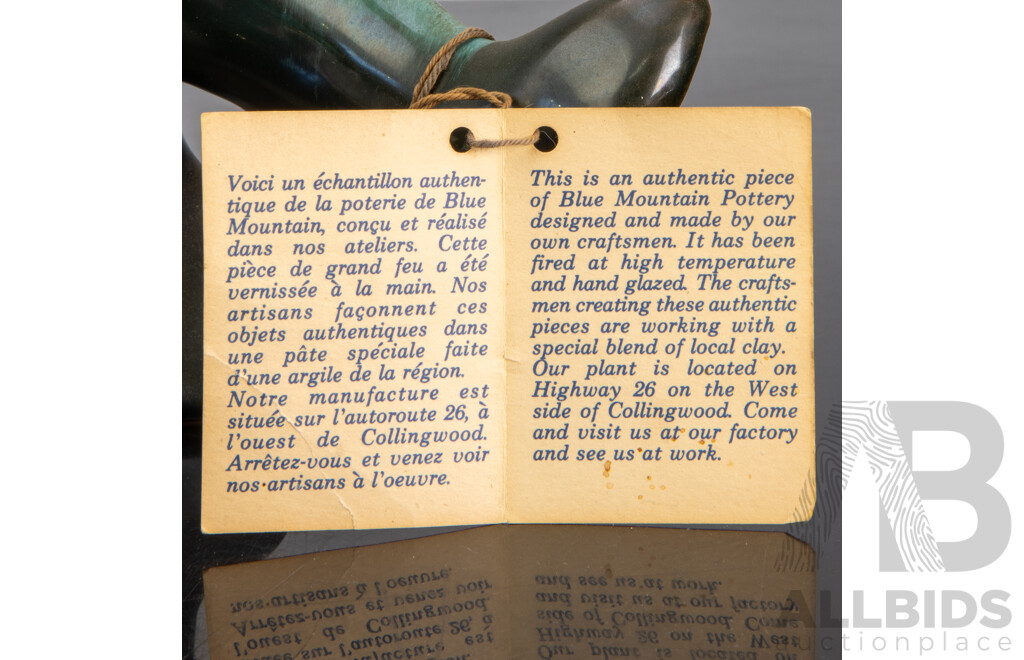 Voici un échantillon authen-
tique de la poterie de Blue
Mountain, conçu et réalisé
dans nos ateliers. Cette
pièce de grand feu a été
vernissée à la main. Nos
artisans façonnent ces
objets authentiques dans
une pâte spéciale faite
d'une argile de la région.
Notre manufacture est
située sur l'autoroute 26, à
l'ouest de Collingwood.
Arrêtez-vous et venez voir
nos artisans à l'oeuvre.
This is an authentic piece
of Blue Mountain Pottery
designed and made by our
own craftsmen. It has been
fired at high temperature
and hand glazed. The crafts-
men creating these authentic
pieces are working with a
special blend of local clay.
Our plant is located on
Highway 26 on the West
side of Collingwood. Come
and visit us at our factory
and see us at work.
AB
ALLBIDS
auctionplace